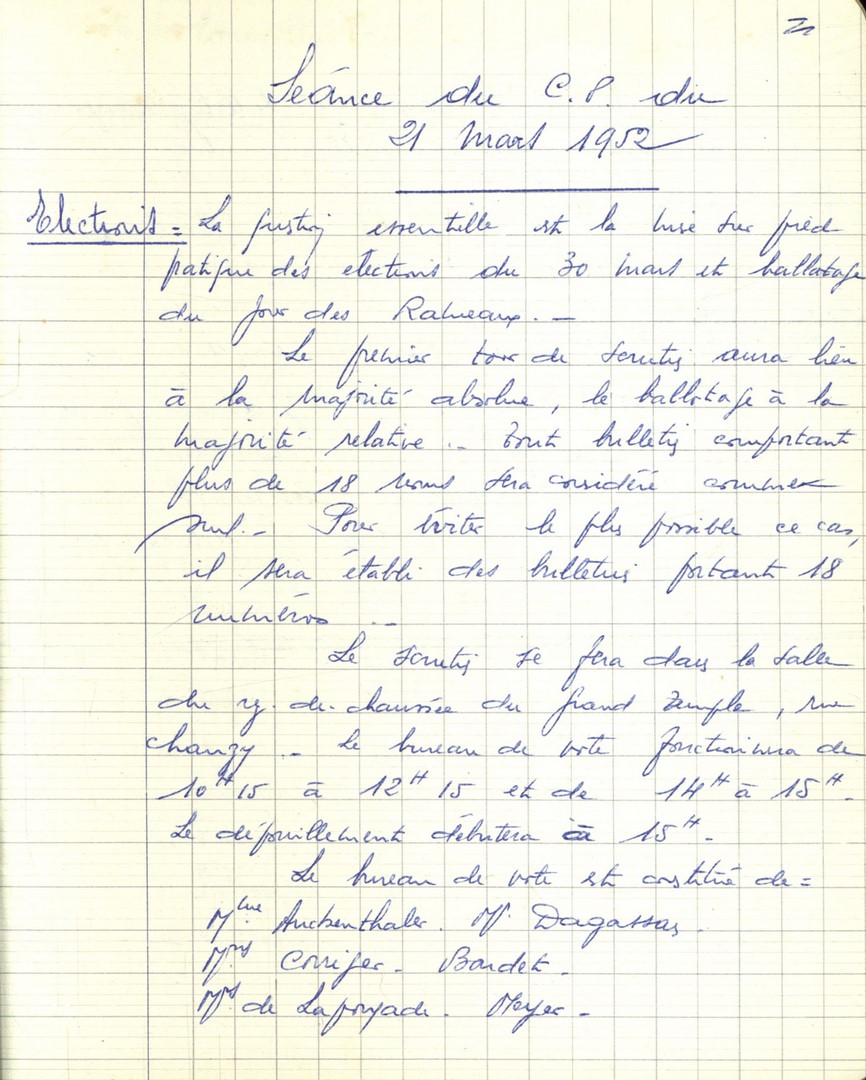 Séance du C.P. du
21 Mars 1952
Elections = La question essentielle est la mise sur pied
pratique des élections du 30 mars et ballotage
du jour des Rameaux. —
Le premier tour de scrutin aura lieu
à la majorité absolue, le ballotage à la
majorité relative .- Tout bulletin comportant
plus de 18 noms sera considéré comme
nul.- Pour éviter le plus possible ce cas,
il sera établi des bulletins portant 18
numéros .-
Le scrutin se fera dans la salle
du rez-de-chaussée du Grand Temple, rue
Chanzy .- Le bureau de vote fonctionnera de
10H15 à 12H15 et de 14H à 15H.
Le dépouillement débutera à 15H.-
Le bureau de vote est constitué de =
Mlle Auckenthaler. Mr. Dagassas.
Mrs Corriger - Bardet.
Mrs de Lafouyade. Meyer -